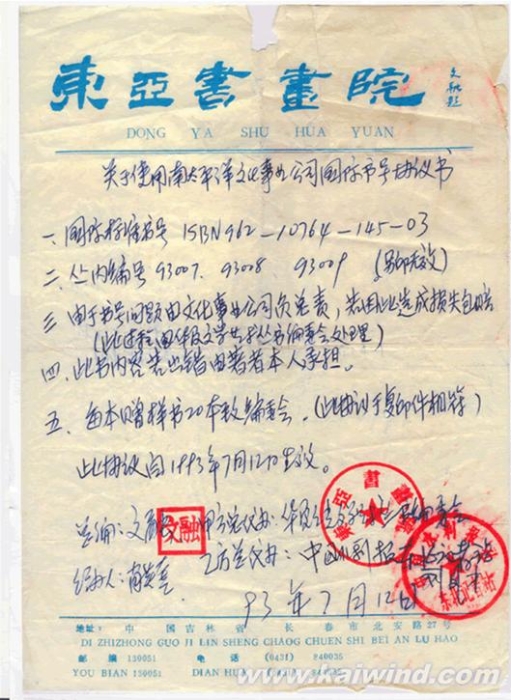 東亞書畫院
DONG YA SHU HUA YUAN
关于使用南太平洋文化事业公司国际书号协议书
一、国际标准书号 ISBN962-10764-145-03
二、丛内编号 93007. 93008. 93009
三 由于书号问题由文化事业公司负完责, 若因此造成损失包赔
四、此书内容若出错由著者本人承担。
五、每本赠样书20本致编委会。(此协议于复印件相符)
此协议自1993年7月12日生效。
总编:文
文融
甲方总代办:
经办人:
乙方总代办:中国
93年7月12日
地址: 中国吉林省长春市北安路27号
DI ZHIZHONG GUO JI LIN SHENG CHAOG CHUEN SHI BEI AN LU HAO
邮编 130051 电话 (0431) 840035
YOU BIAN 150051 DIAN HUA
www.kaiwind.com